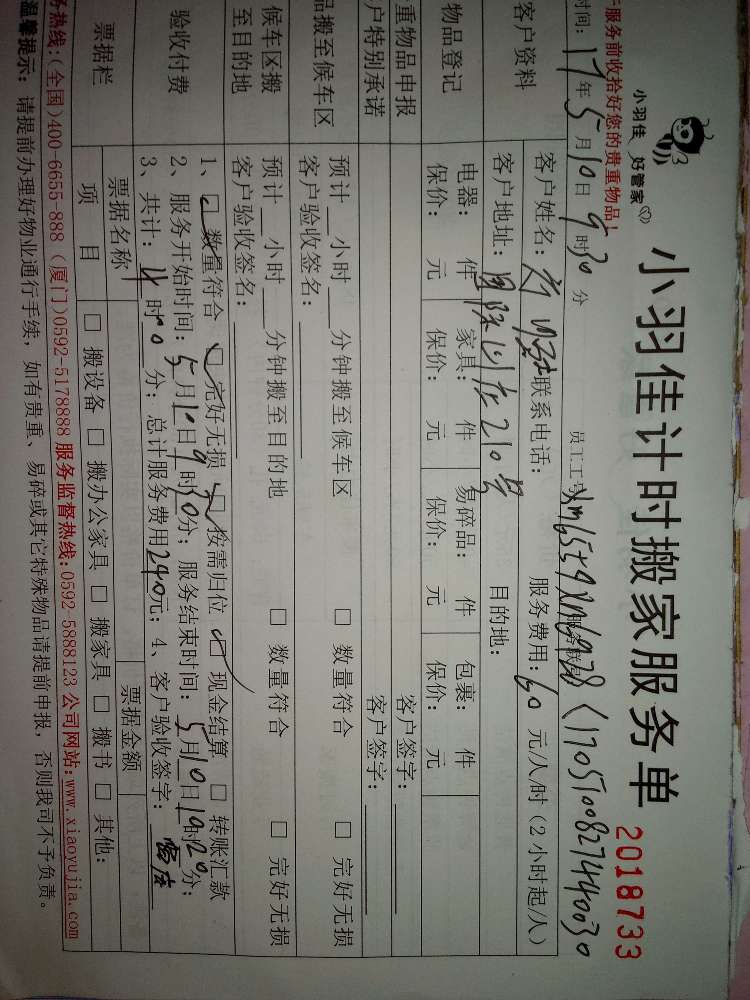 小羽佳 好管家
小羽佳计时搬家服务单 2018733
服务前收拾好您的贵重物品!
时间: 17年5月10日9时30分 员工工号
客户资料 客户姓名: 联系电话: 服务费用: 60 元/人/时(2小时起/人)
客户地址: 210号 目的地:
物品登记 电器: 件 家具: 件 易碎品: 件 包裹: 件
保价: 元 保价: 元 保价: 元 保价: 元
重物品申报 客户签字:
户特别承诺 客户签字:
品搬至候车区 预计__小时__分钟搬至候车区 □ 数量符合 □ 完好无损
客户验收签名:
候车区搬至目的地 预计__小时__分钟搬至目的地 □ 数量符合 □ 完好无损
客户验收签名:
验收付费 1、□ 数量符合 □ 完好无损 □ 按需归位 □ 现金结算 □ 转账汇款
2、服务开始时间: 5月10日9时30分; 服务结束时间: 5月10日 时20分;
3、共计: 4时0分; 总计服务费用240元; 4、客户验收签字:
票据栏 票据名称 票据金额
项 目 □ 搬设备 □ 搬办公家具 □ 搬家具 □ 搬书 □ 其他:
务热线:(全国)400-6655-888 (厦门)0592-5178888 服务监督热线:0592-5888123 公司网站:www.xiaoyujia.com
温馨提示: 请提前办理好物业通行手续, 如有贵重、易碎或其它特殊物品请提前申报, 否则我司不予负责。